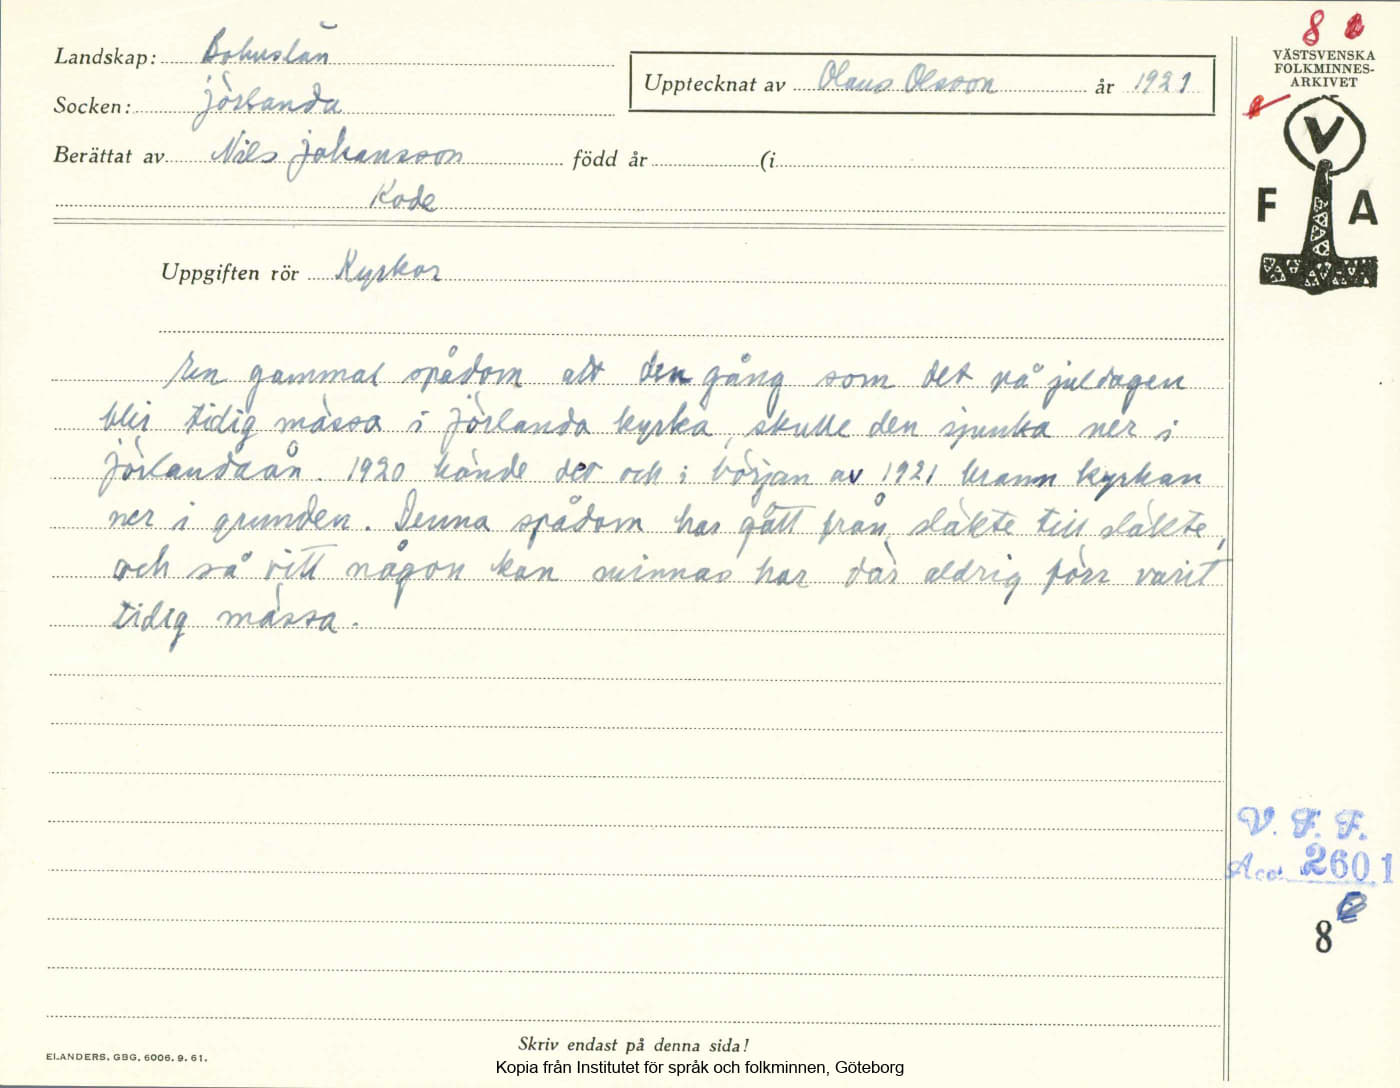 Landskap: Bohuslän
Socken: Jörlanda
Berättat av Nils Johansson född år (i
Kode
Upptecknat av Olaus Olsson år 1921
8
VÄSTSVENSKA
FOLKMINNES-
ARKIVET
V
F A
Uppgiften rör Kyrkor
En gammal spådom att den gång som det på juldagen
blir tidig mässa i Jörlanda kyrka, skulle den sjunka ner i
Jörlandaån. 1920 hände det och i början av 1921 brann kyrkan
ner i grunden. Denna spådom har gått från släkte till släkte,
och så vitt någon kan minnas har där aldrig förr varit
tidig mässa.
V. F. F.
Acc. 2601
8
Skriv endast på denna sida!
ELANDERS, GBG, 6006. 9. 61.
Kopia från Institutet för språk och folkminnen, Göteborg